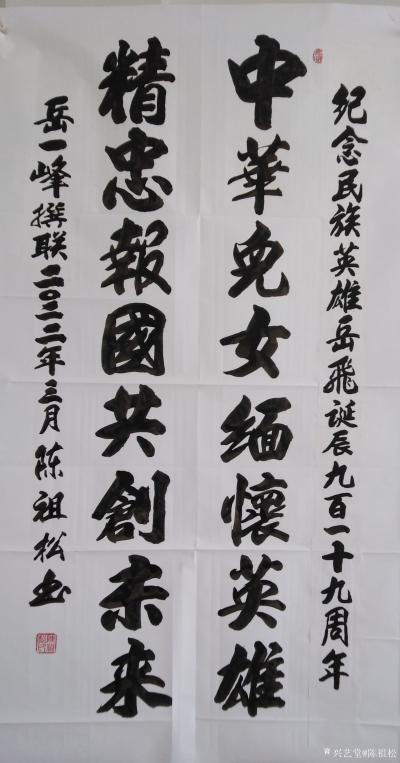 纪念民族英雄岳飛诞辰九百一十九周年
中華児女缅懷英雄
精忠報國共創未来
岳一峰撰联二〇二二年三月陈祖松书
兴艺堂@陈祖松